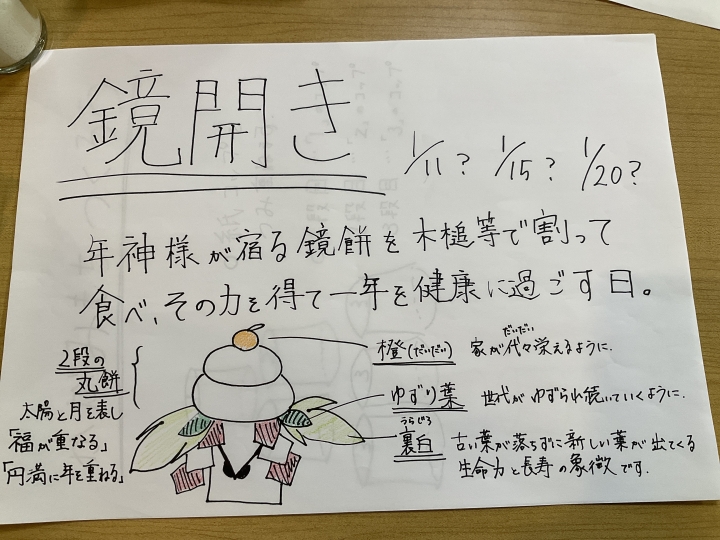 鏡開き
1/11? 1/15? 1/20?
年神様が宿る鏡餅を木槌等で割って
食べ、その力を得て一年を健康に過ごす日。
2段の
丸餅
太陽と月を表し
「福が重なる」
「円満に年を重ねる」
橙(だいだい) 家が代々栄えるように.
だいだい
ゆずり葉 世代がゆずられ続いていくように.
うらじろ
裏白 古い葉が落ちずに新しい葉が出てくる
生命力と長寿の象徴です.